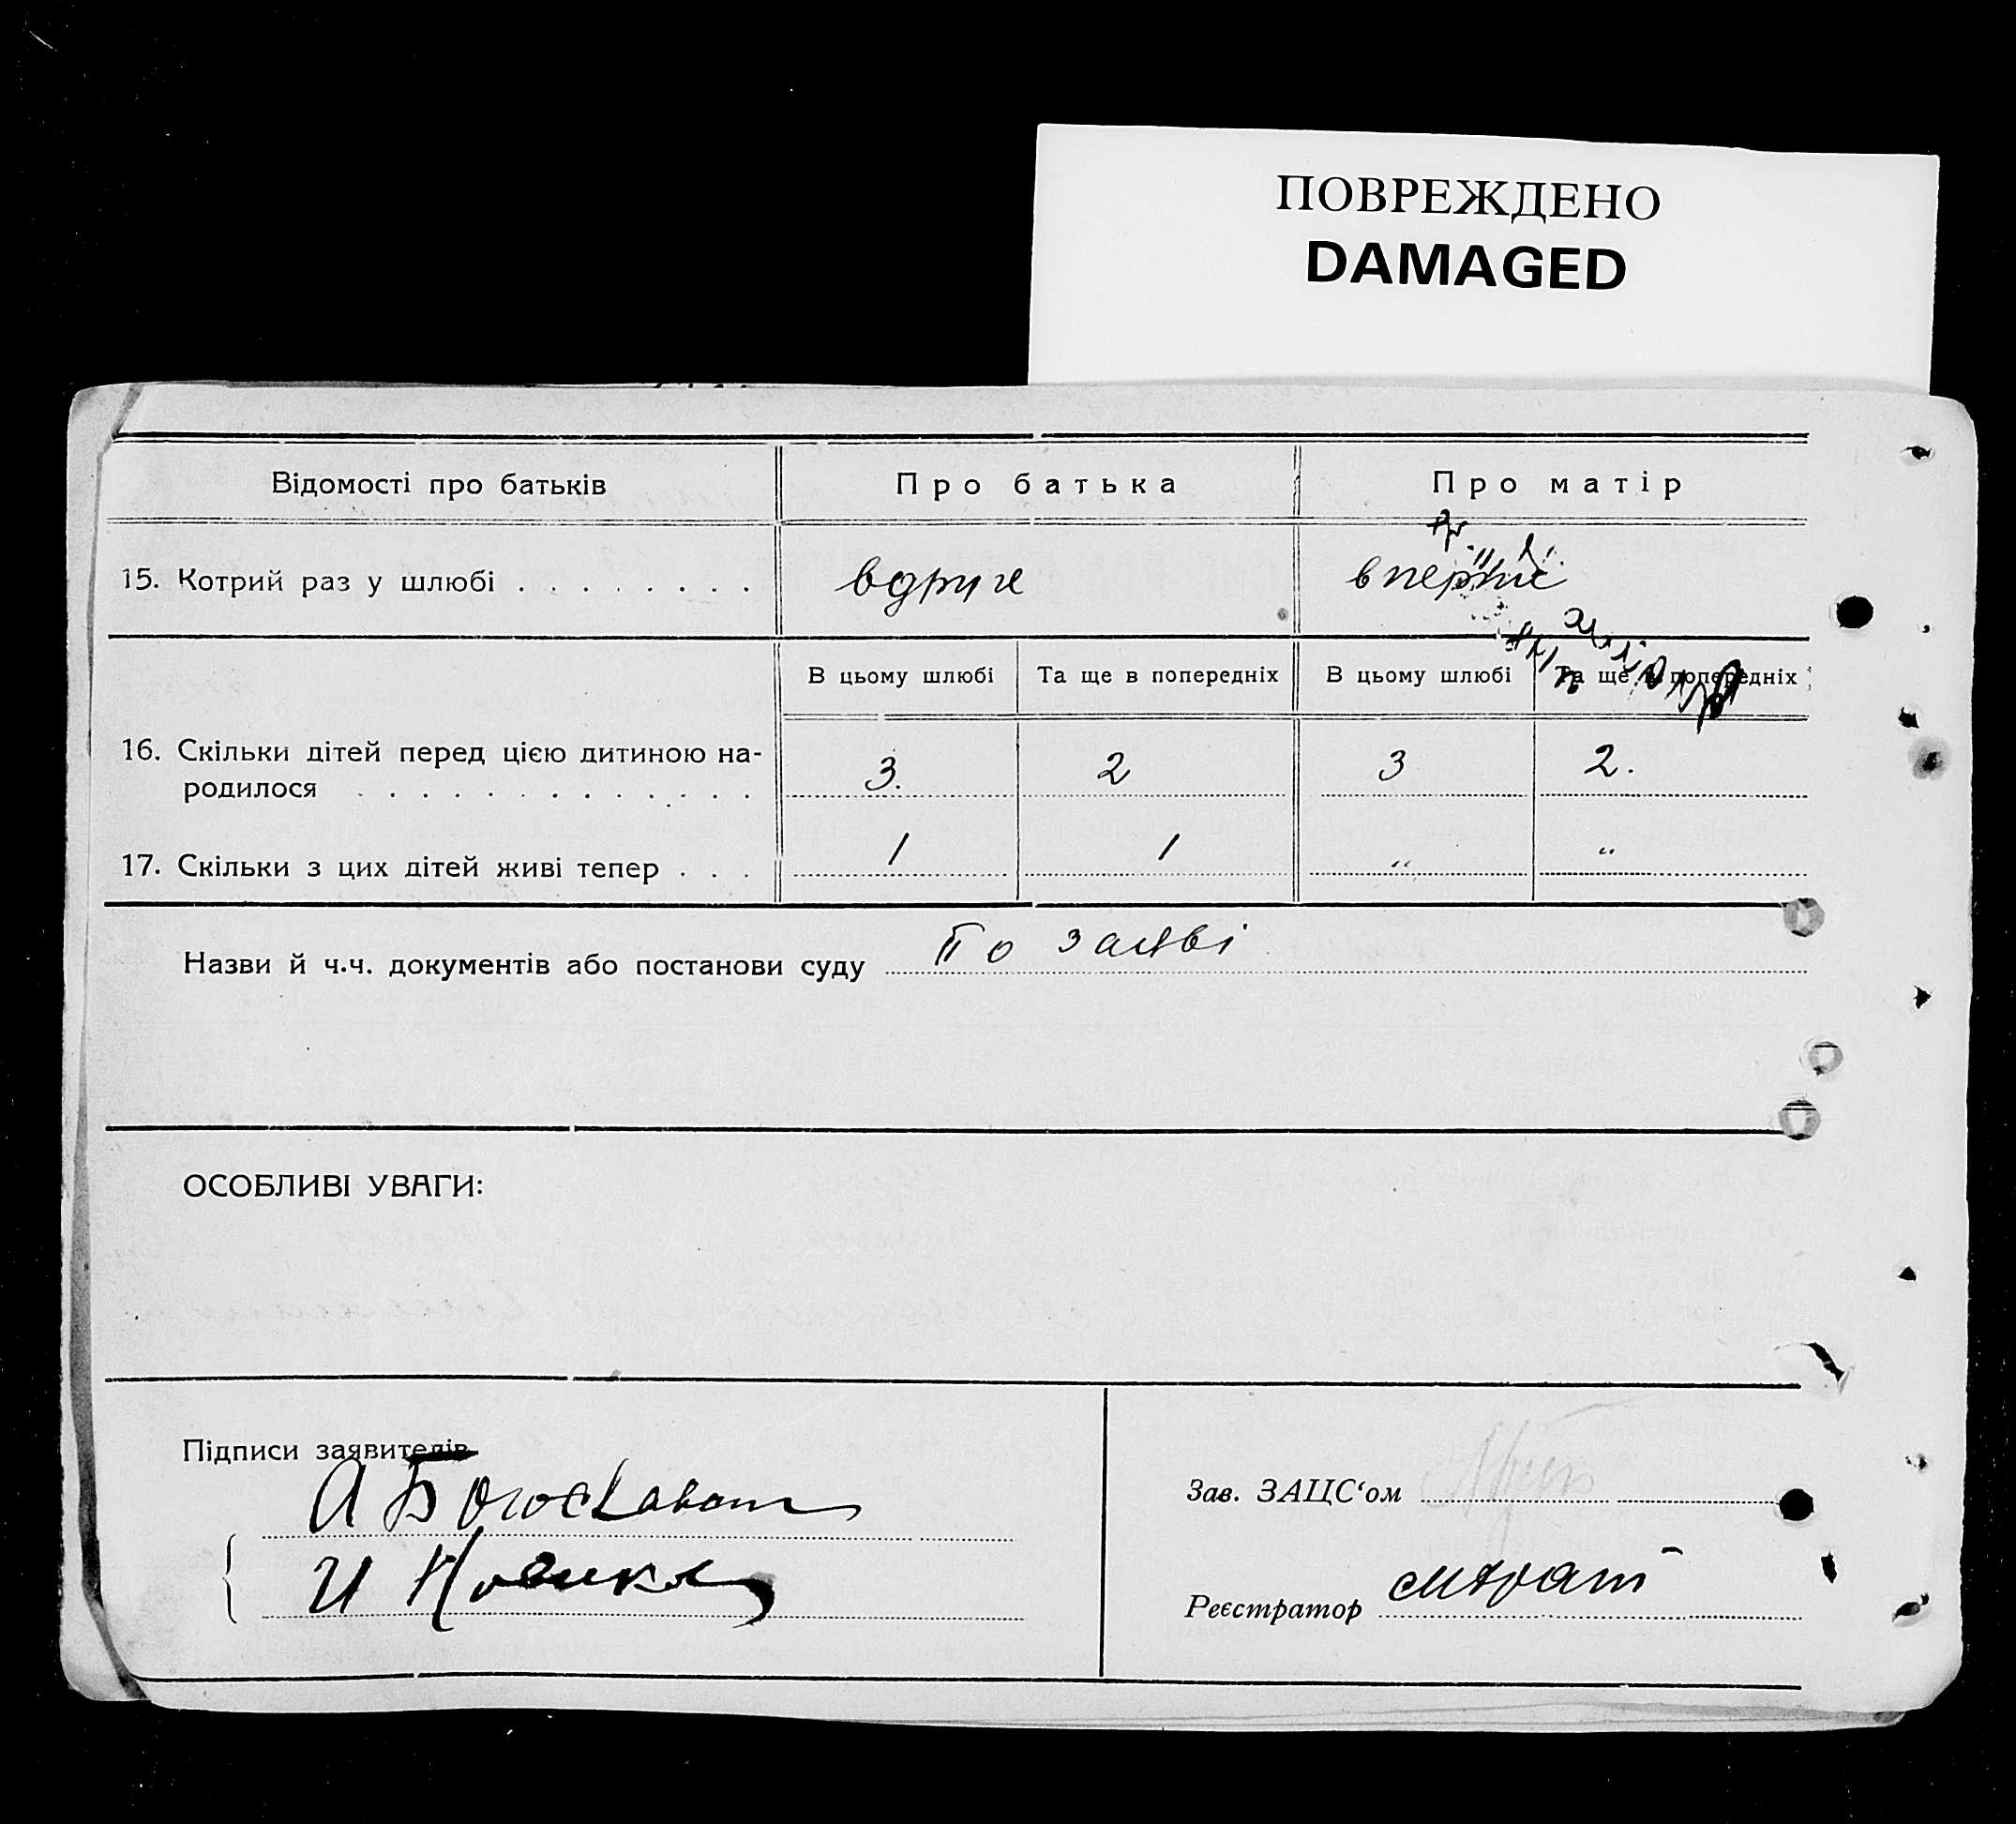 ПОВРЕЖДЕНО
DAMAGED
Відомості про батьків
Про батька
Про матір
15. Котрий раз у шлюбі . . . . . . . .
вдруге
вперше
В цьому шлюбі
Та ще в попередніх
В цьому шлюбі
Та ще в попередніх
16. Скільки дітей перед цією дитиною на-
родилося . . . . . . . . . . . . .
3.
2
3
2.
17. Скільки з цих дітей живі тепер . . .
1
1
"
"
Назви й ч.ч. документів або постанови суду По заяві
ОСОБЛИВІ УВАГИ:
Підписи заявителів
А
И
Зав. ЗАЦС‘ом
Реєстратор